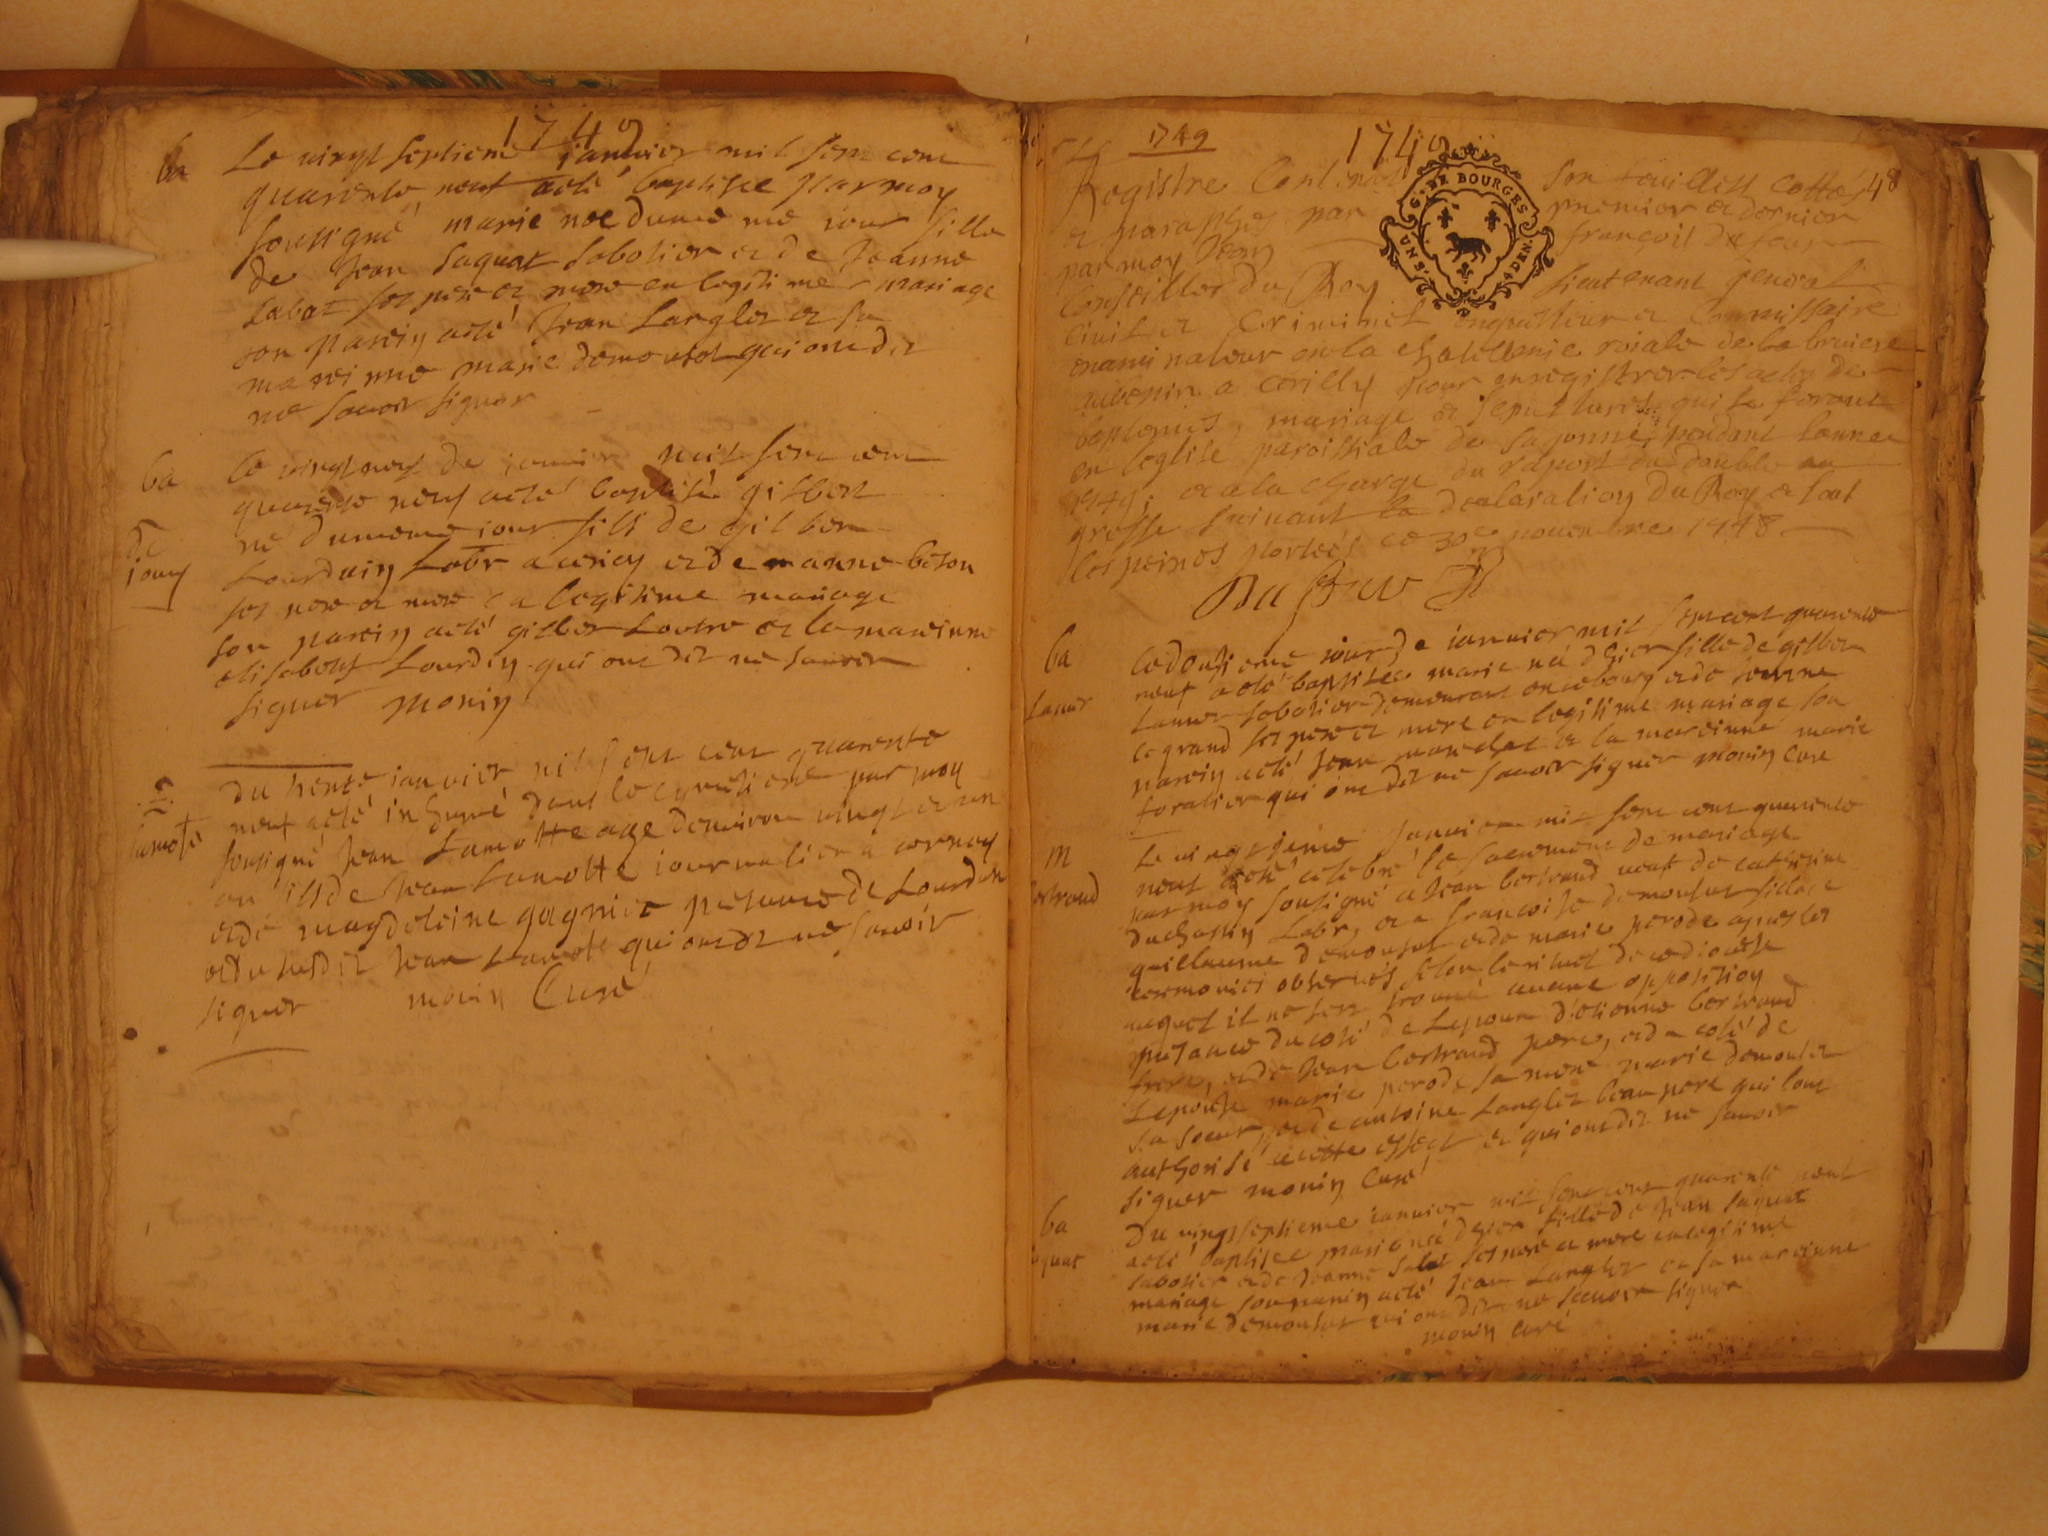 1749
ba
Le vingt septieme janvier mil sept cent
quarente neuf a esté baptisée par moy
sousigné marie née du meme jour fille
de Jean Saquat sabotier et de Jeanne
Sabat ses pere et mere en legitime mariage
son parein a esté Jean Langlet et sa
mareinne marie demoulat qui ont dit
ne savoir signer
ba
Le vingt neuf de janvier mil sept cent
quarente neuf a esté baptisé gilbert
né du meme jour fils de gilbert
Lourduin Labr a et de manne
ses pere et mere en legitime mariage
son parein a esté gilbert et la mareinne
elisabeth Lourdin qui ont dit ne savoir
signer monin
Lamote
Du trente janvier mil sept cent quarente
neuf a esté inhumé dans le cymetiere par moy
sousigné Jean Lamotte agé d'environ vingt et un
an fils de Jean Lamotte journalier a
et de magdeleine gagniere presence de Lourduin
et du susdit Jean Lamotte qui ont dit ne savoir
signer monin Curé
1749
1749
Registre Contenant son feuillets cottés 48
et paraphés par premier et dernier
par moy Jean françois
Conseiller du Roy Lieutenant general
Civil et Criminel enquesteur et Commissaire
examinateur en la chatellenie roiale de la bruiere
aubepin a cerilly pour enregistrer les actes de
baptemes, mariage et sepultures qui se feront
en leglise paroissiale de Sagonne pendant lannee
1749, et a la charge du raport du double en
grosse suivant la declaration du Roy et sout
les peines portées ce 30e novembre 1748
ba
Lauur
Le dousieme jour de janvier mil sept cent quarente
neuf a esté baptisée marie née d'hier fille de gilbert
sabotier demeurant en ce bourg et de Jeanne
legrand ses pere et mere en legitime mariage son
parein a esté Jean marechal et la mareinne marie
qui ont dit ne savoir signer monin Curé
m
Bertrand
Le vingtieme Janvier mil sept cent quarente
neuf a esté celebré le sacrement de mariage
par moy sousigné a Jean bertrand veuf de catherine
duchassin Labr, et a françoise demoulat fille de
guillaume demoulat et de marie perode apres les
ceremonies observés selon le rituel de ce diocese
auquel il ne sest trouvé aucune opposition
presance du coté de Lepoux d'etienne bertrand
frere, et de Jean bertrand pere, et du coté de
Lepouse marie perode sa mere marie demoulat
sa soeur, et de antoine Langlet beau pere qui lont
authorisé a cette effect et qui ont dit ne savoir
signer monin Curé
ba
Saquat
Du vingt septieme janvier mil sept cent quarente neuf
a esté baptisee marie née d'hier fille de Jean Saquat
sabotier et de Jeanne Sabat ses pere et mere en legitime
mariage son parein a esté Jean Langlet et sa mareinne
marie demoulat qui ont dit ne savoir signer
monin curé
G. DE BOURGES
UN S.
4 DEN.